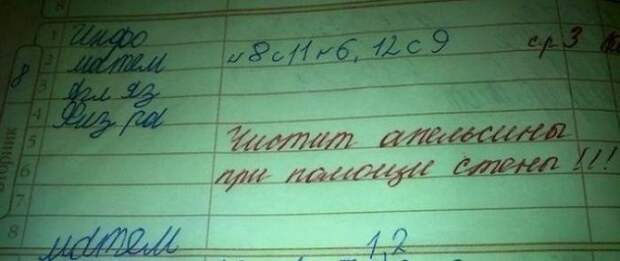 1 Инфо
2 матем н8с11н6, 12с9 ср 3
3 Ял яз
4 Физ ра
5 Чистит апельсины
6 при помощи стены!!!
7
8 матем 1,2
8
вторник